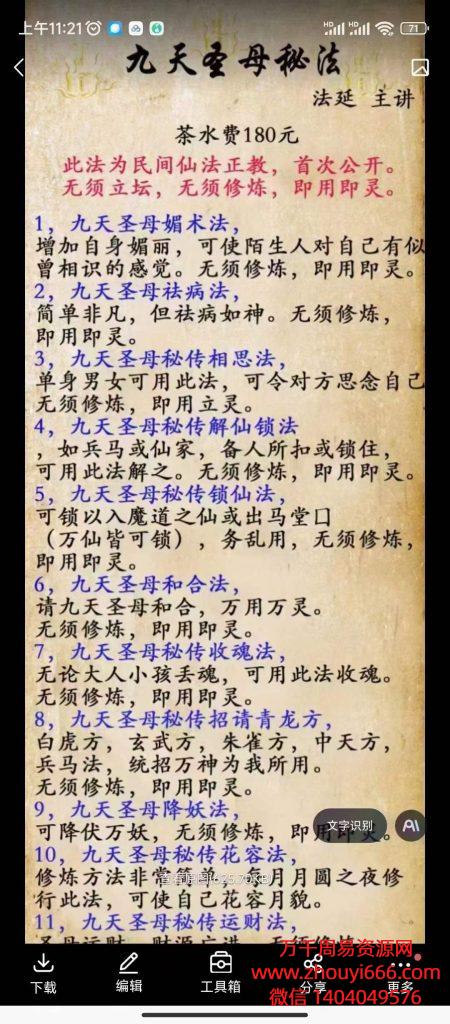 上午11:21
71
九天圣母秘法
法延 主讲
茶水费180元
此法为民间仙法正教，首次公开。
无须立坛，无须修炼，即用即灵。
1，九天圣母媚术法，
增加自身媚丽，可使陌生人对自己有似
曾相识的感觉。无须修炼，即用即灵。
2，九天圣母祛病法，
简单非凡，但祛病如神。无须修炼，
即用即灵。
3，九天圣母秘传相思法，
单身男女可用此法，可令对方思念自己
无须修炼，即用立灵。
4，九天圣母秘传解仙锁法
，如兵马或仙家，备人所扣或锁住，
可用此法解之。无须修炼，即用即灵。
5，九天圣母秘传锁仙法，
可锁以入魔道之仙或出马堂口
（万仙皆可锁），务乱用，无须修炼，
即用即灵。
6，九天圣母和合法，
请九天圣母和合，万用万灵。
无须修炼，即用即灵。
7，九天圣母秘传收魂法，
无论大人小孩丢魂，可用此法收魂。
无须修炼，即用即灵。
8，九天圣母秘传招请青龙方，
白虎方，玄武方，朱雀方，中天方，
兵马法，统招万神为我所用。
无须修炼，即用即灵。
9，九天圣母降妖法，
可降伏万妖，无须修炼，即用即灵。
文字识别
10，九天圣母秘传花容法，
修炼方法非常简单，月月圆之夜修
查看原图(625.79KB)
行此法，可使自己花容月貌。
11，九天圣母秘传运财法，
圣母运财，财源广进，无须修炼
万千周易资源网
www.zhouyi666.com
微信 1404049576
下载
编辑
工具箱
分享
更多